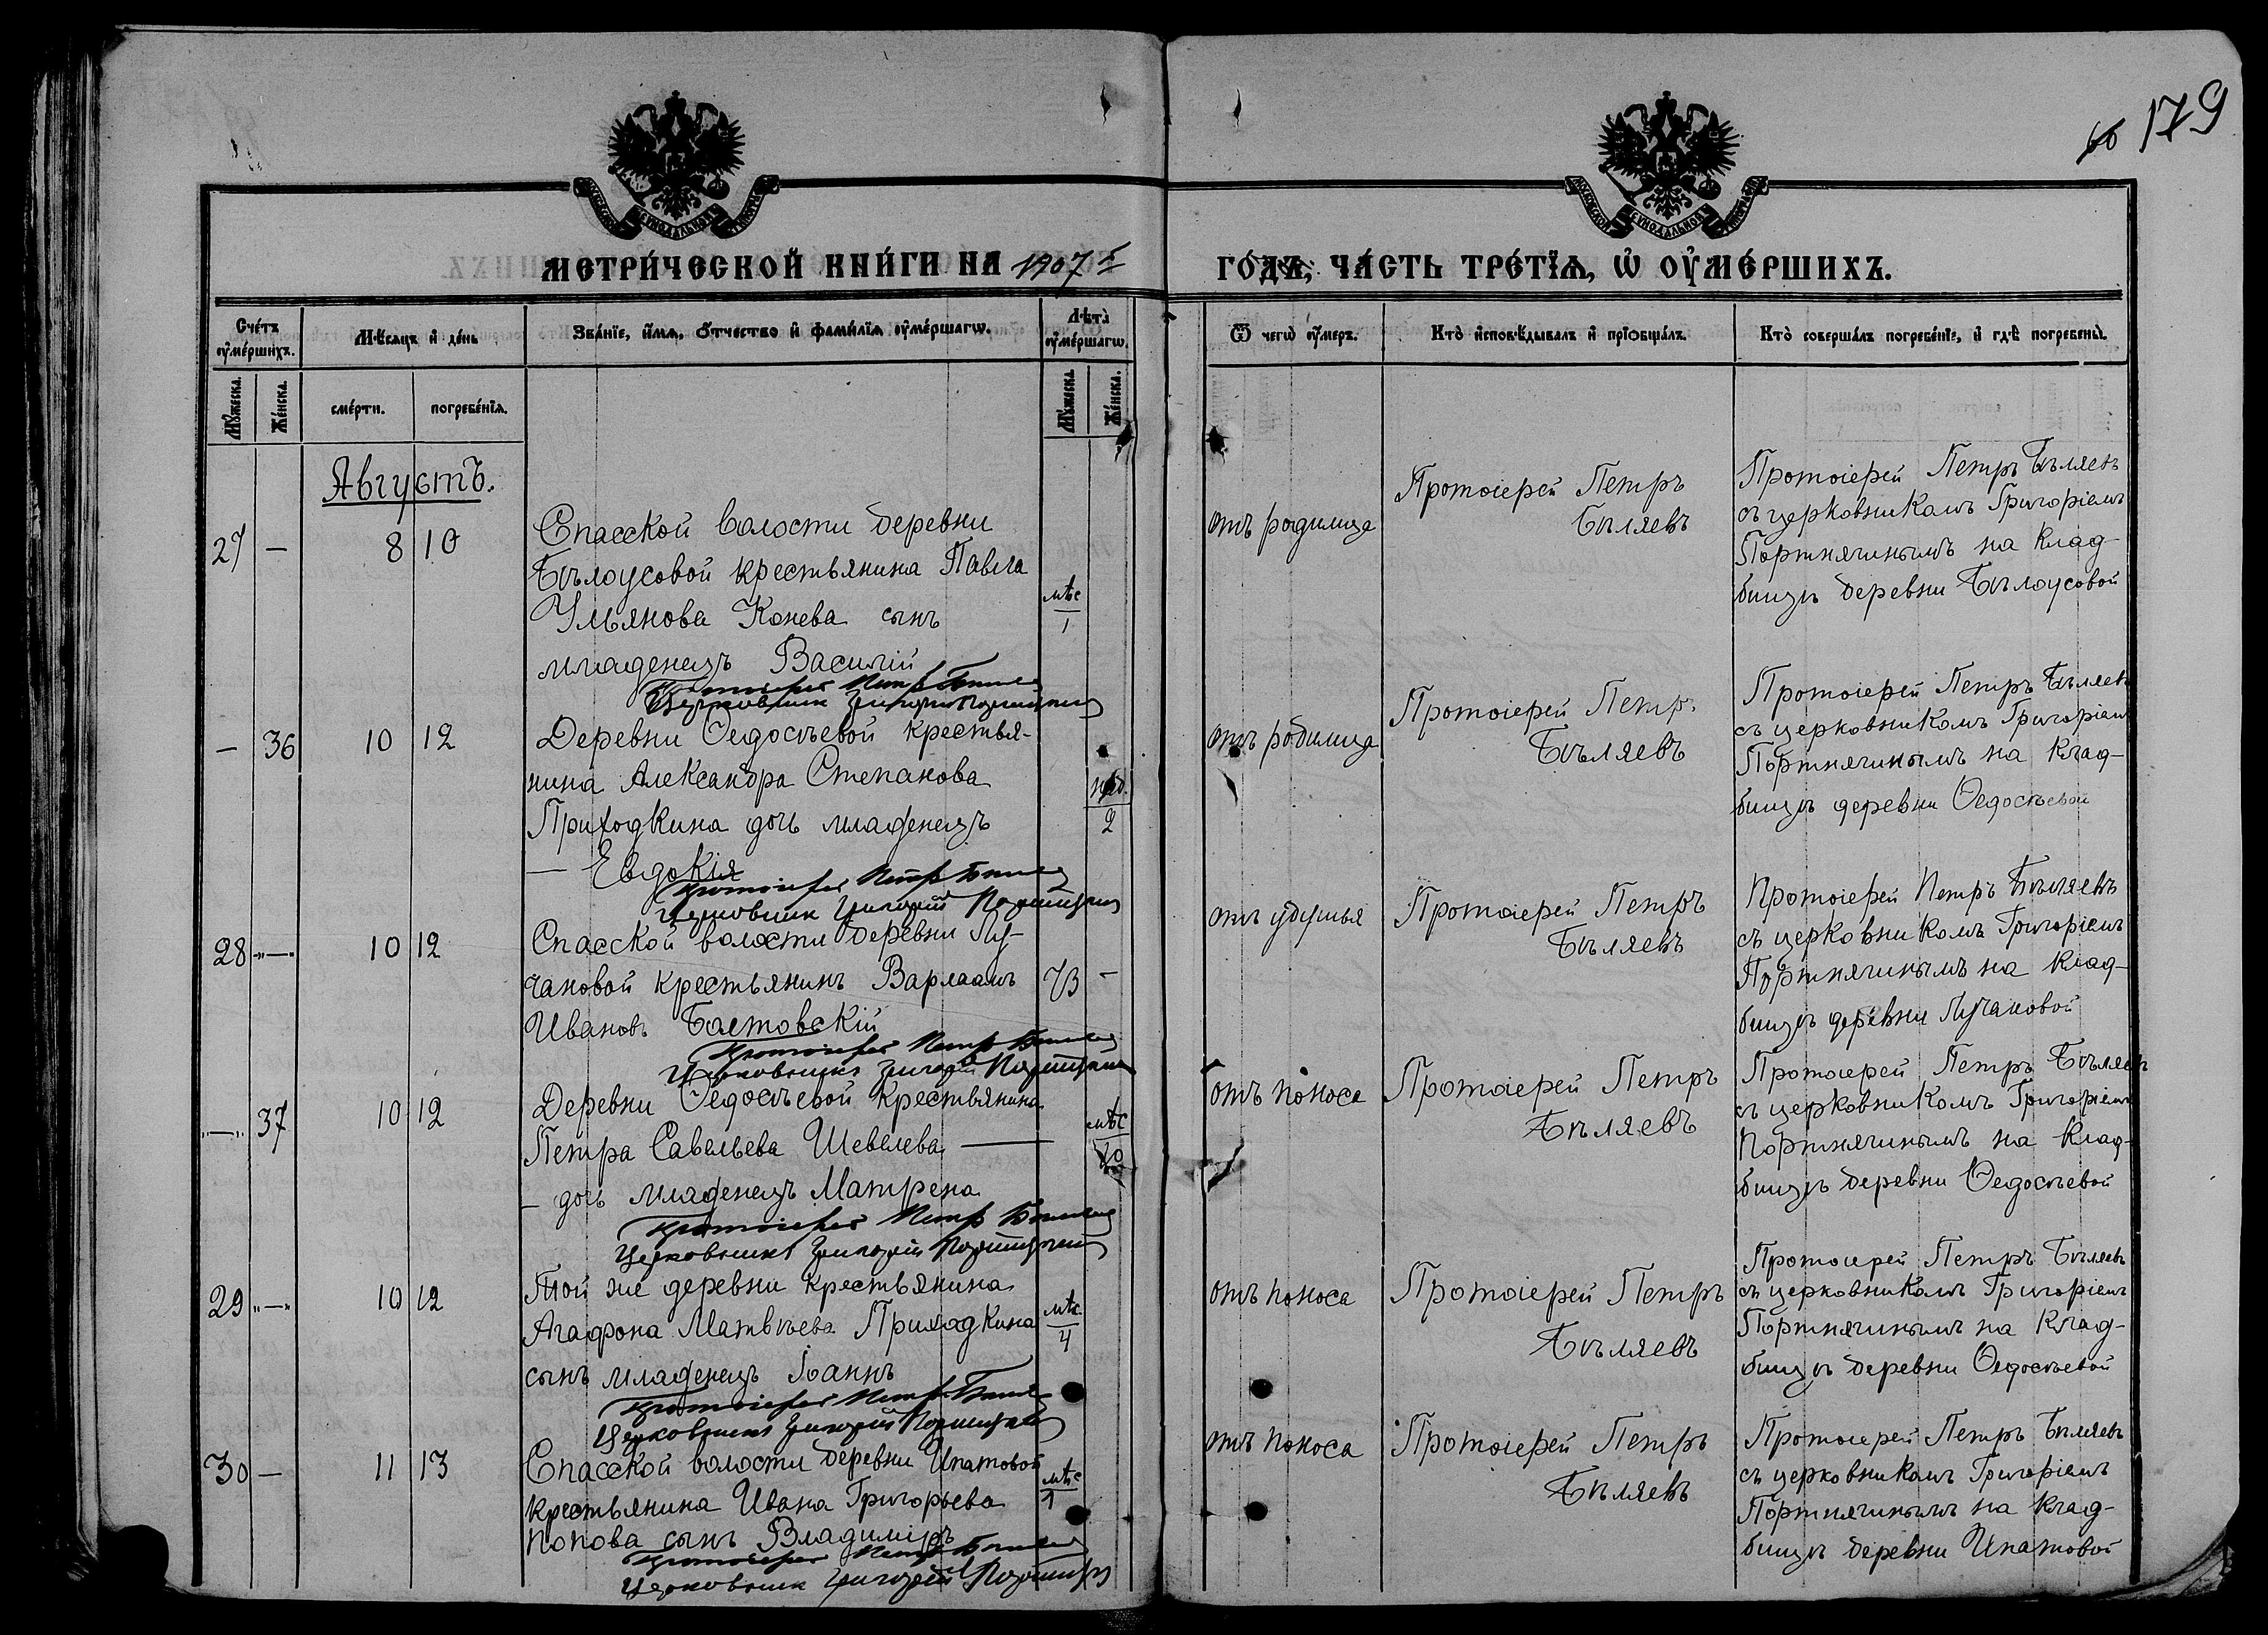 60 179
МЕТРИЧЕСКОЙ КНИГИ НА 1907 й
ГОДЪ, ЧАСТЬ ТРЕТІЯ, Ѡ ОУМЕРШИХЪ.
Счетъ оумершихъ.
Мѣсяцъ и день
Званіе, имя, отчество и фамилія оумершагѡ.
Лѣта оумершагѡ.
Ѿ чегѡ оумеръ.
Кто исповѣдывалъ и пріобщалъ.
Кто совершалъ погребеніе, и гдѣ погребены.
Мужеска.
Женска.
смерти.
погребенія.
Мужеска.
Женска.
Августъ.
27 — 8 10
Спасской волости деревни
Бѣлоусовой крестьянина Павла
Ульянова Конева сынъ
младенецъ Василій
мѣс
1
отъ родимца
Протоіерей Петръ
Бѣляевъ
Протоіерей Петръ Бѣляевъ
съ церковникомъ Григоріемъ
Портнягинымъ на клад-
бищѣ деревни Бѣлоусовой
Протоіерей Петръ Бѣляевъ
Церковникъ Григорій Портнягинъ
— 36 10 12
Деревни Ѳедосѣевой крестья-
нина Александра Степанова
Приходкина дочь младенецъ
— Евдокія
нед.
2
отъ родимца
Протоіерей Петръ
Бѣляевъ
Протоіерей Петръ Бѣляевъ
съ церковникомъ Григоріемъ
Портнягинымъ на клад-
бищѣ деревни Ѳедосѣевой
Протоіерей Петръ Бѣляевъ
Церковникъ Григорій Портнягинъ
28 „—„ 10 12
Спасской волости деревни Лу-
чановой крестьянинъ Варлаамъ
Ивановъ Бастовскій
73 —
отъ удушья
Протоіерей Петръ
Бѣляевъ
Протоіерей Петръ Бѣляевъ
съ церковникомъ Григоріемъ
Портнягинымъ на клад-
бищѣ деревни Лучановой
Протоіерей Петръ Бѣляевъ
Церковникъ Григорій Портнягинъ
„—„ 37 10 12
Деревни Ѳедосѣевой крестьянина
Петра Савельева Шевелева —
— дочь младенецъ Матрена
мѣс
10
отъ поноса
Протоіерей Петръ
Бѣляевъ
Протоіерей Петръ Бѣляевъ
съ церковникомъ Григоріемъ
Портнягинымъ на клад-
бищѣ деревни Ѳедосѣевой
Протоіерей Петръ Бѣляевъ
Церковникъ Григорій Портнягинъ
29 „—„ 10 12
Той же деревни крестьянина
Агафона Матвѣева Приходкина
сынъ младенецъ Іоаннъ
мѣс
4
отъ поноса
Протоіерей Петръ
Бѣляевъ
Протоіерей Петръ Бѣляевъ
съ церковникомъ Григоріемъ
Портнягинымъ на клад-
бищѣ деревни Ѳедосѣевой
Протоіерей Петръ Бѣляевъ
Церковникъ Григорій Портнягинъ
30 — 11 13
Спасской волости деревни Ипатовой
крестьянина Ивана Григорьева
Попова сынъ Владиміръ
мѣс
1
отъ поноса
Протоіерей Петръ
Бѣляевъ
Протоіерей Петръ Бѣляевъ
съ церковникомъ Григоріемъ
Портнягинымъ на клад-
бищѣ деревни Ипатовой
Протоіерей Петръ Бѣляевъ
Церковникъ Григорій Портнягинъ